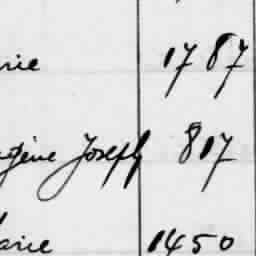 rie 1787
ugène Joseph 817
arie 1450